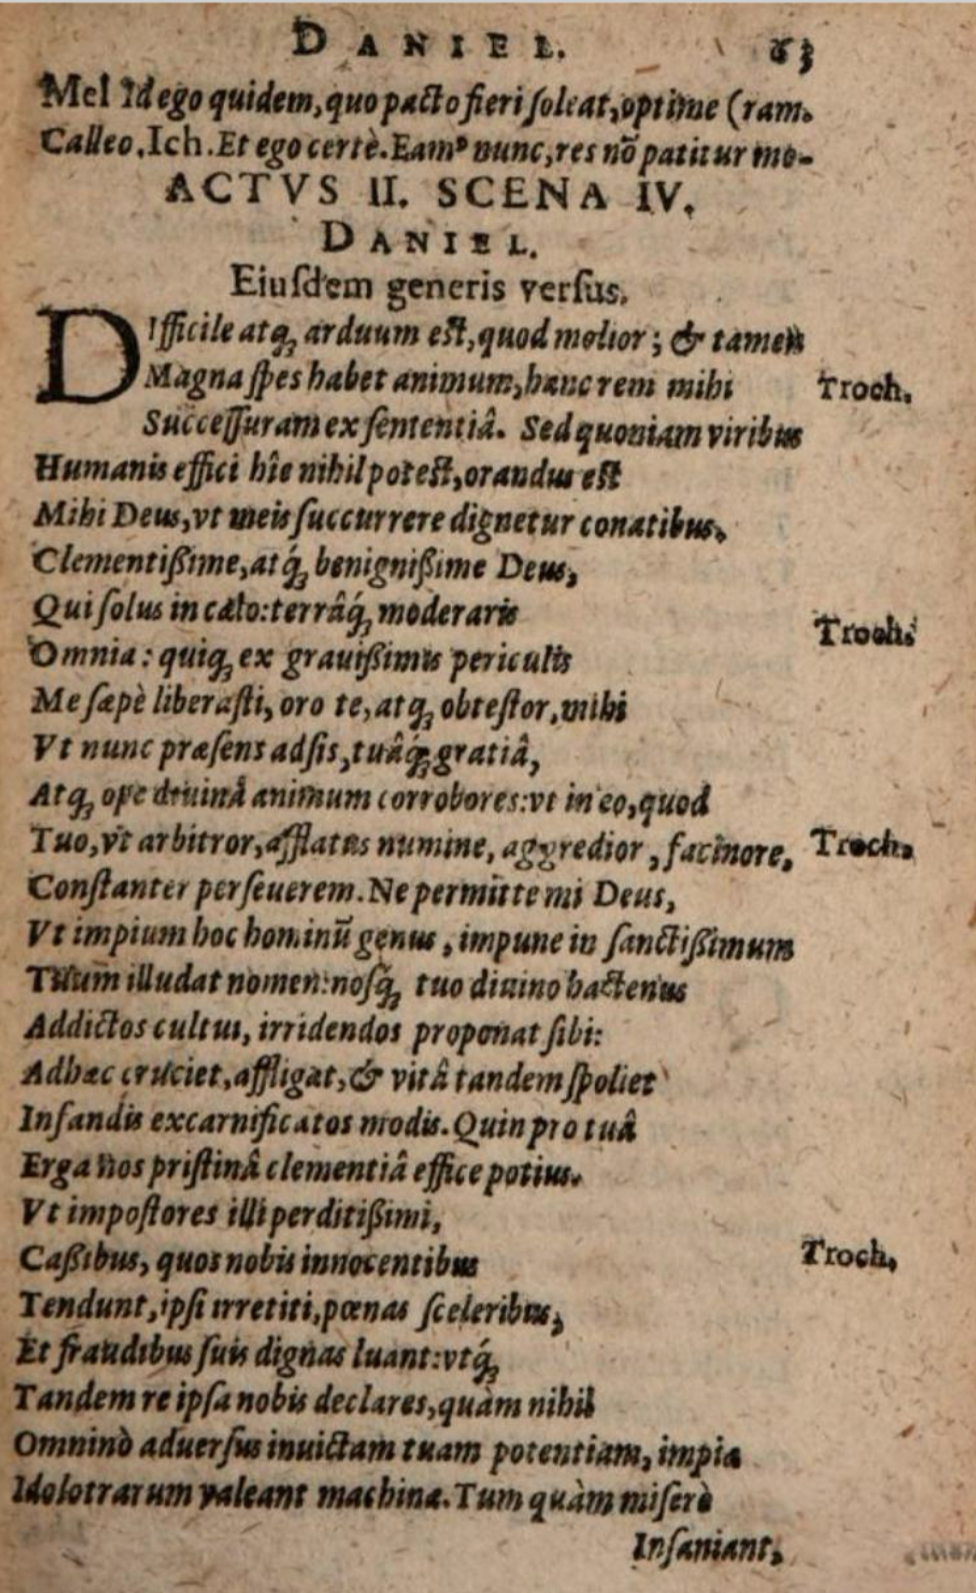 DANIEL. 63
Mel Id ego quidem, quo pacto fieri soleat, optime (ram.
Calleo. Ich. Et ego certè. Eamꝰ nunc, res nõ patitur mo-
ACTVS II. SCENA IV.
DANIEL.
Eiusdem generis versus.
DIfficile atq; arduum est, quod molior; & tamen
Magna spes habet animum, hanc rem mihi Troch.
Successuram ex sententiâ. Sed quoniam viribus
Humanis effici hîc nihil potest, orandus est
Mihi Deus, vt meis succurrere dignetur conatibus.
Clementißime, atq́; benignißime Deus,
Qui solus in cælo: terrâq́; moderaris
Troch.
Omnia: quiq; ex grauißimis periculis
Me sæpè liberasti, oro te, atq; obtestor, mihi
Vt nunc præsens adsis, tuâq́; gratiâ,
Atq; ope diuinâ animum corrobores: vt in eo, quod
Tuo, vt arbitror, afflatus numine, aggredior, facinore, Troch.
Constanter perseuerem. Ne permitte mi Deus,
Vt impium hoc hominũ genus, impune in sanctißimum
Tuum illudat nomen: nosq́; tuo diuino hactenus
Addictos cultui, irridendos proponat sibi:
Adhæc cruciet, affligat, & vitâ tandem spoliet
Infandis excarnificatos modis. Quin pro tuâ
Erga nos pristinâ clementiâ effice potius.
Vt impostores illi perditißimi,
Caßibus, quos nobis innocentibus Troch.
Tendunt, ipsi irretiti, pœnas sceleribus,
Et fraudibus suis dignas luant: vtq́;
Tandem re ipsa nobis declares, quàm nihil
Omninò aduersus inuictam tuam potentiam, impia
Idolotrarum valeant machinæ. Tum quàm miserè
Insaniant,